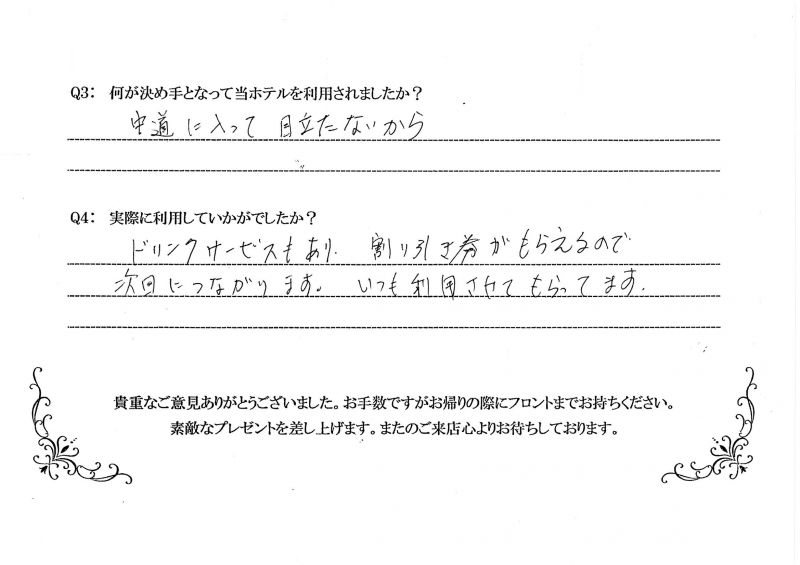 Q3: 何が決め手となって当ホテルを利用されましたか？
中道に入って目立たないから
Q4: 実際に利用していかがでしたか？
ドリンクサービスもあり、割り引き券がもらえるので
次回につながります。いつも利用させてもらってます.
貴重なご意見ありがとうございました。お手数ですがお帰りの際にフロントまでお持ちください。
素敵なプレゼントを差し上げます。またのご来店心よりお待ちしております。